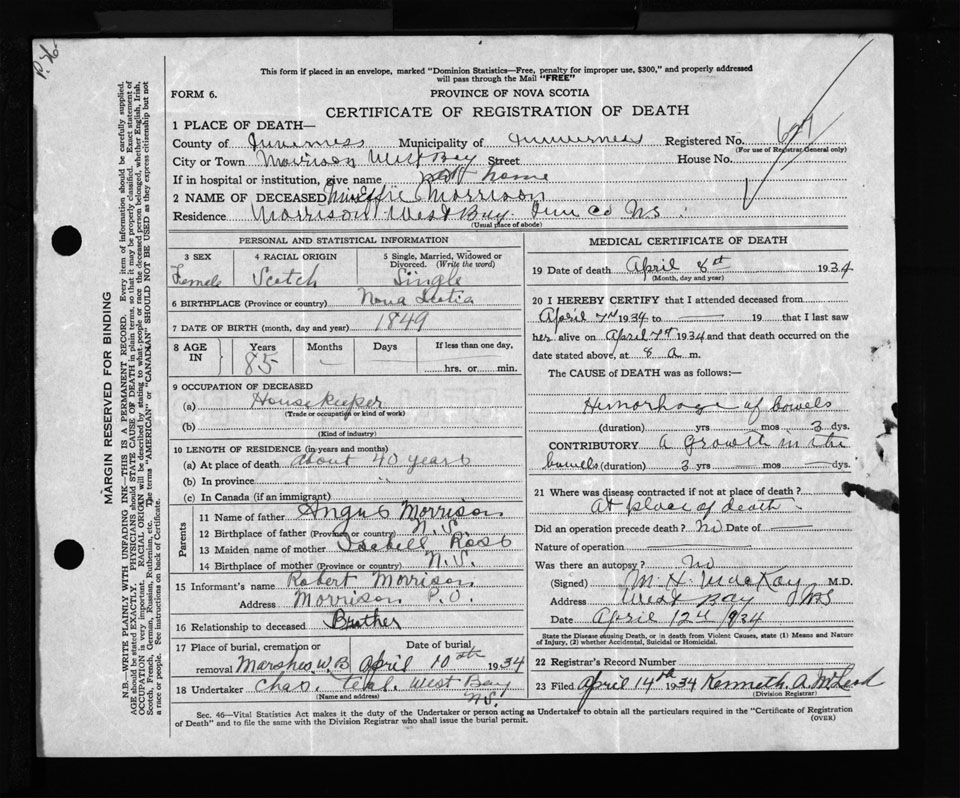 P. 76
This form if placed in an envelope, marked "Dominion Statistics—Free, penalty for improper use, $300," and properly addressed
will pass through the Mail "FREE"
FORM 6.
PROVINCE OF NOVA SCOTIA
CERTIFICATE OF REGISTRATION OF DEATH
1 PLACE OF DEATH—
County of Inverness Municipality of Inverness Registered No.
(For use of Registrar General only)
City or Town Morrison West Bay Street House No.
If in hospital or institution, give name at home
2 NAME OF DECEASED Miss Effie Morrison
Residence Morrison West Bay Inv Co NS
(Usual place of abode)
PERSONAL AND STATISTICAL INFORMATION
3 SEX Female
4 RACIAL ORIGIN Scotch
5 Single, Married, Widowed or Divorced. (Write the word) Single
6 BIRTHPLACE (Province or country) Nova Scotia
7 DATE OF BIRTH (month, day and year) 1849
8 AGE IN Years 85 Months — Days If less than one day, hrs. or min.
9 OCCUPATION OF DECEASED
(a) Housekeeper
(Trade or occupation or kind of work)
(b)
(Kind of industry)
10 LENGTH OF RESIDENCE (in years and months)
(a) At place of death about 40 years
(b) In province "
(c) In Canada (if an immigrant)
Parents
11 Name of father Angus Morrison
12 Birthplace of father (Province or country) N.S.
13 Maiden name of mother Isabell Ross
14 Birthplace of mother (Province or country) N.S.
15 Informant's name Robert Morrison
Address Morrison P.O.
16 Relationship to deceased Brother
17 Place of burial, cremation or removal Marshes W.B. Date of burial, April 10th 1934
18 Undertaker Chas. Teal. West Bay N.S.
(Name and address)
MEDICAL CERTIFICATE OF DEATH
19 Date of death April 8th 1934
(Month, day and year)
20 I HEREBY CERTIFY that I attended deceased from
April 7th 1934 to — 19 — that I last saw
her alive on April 7th 1934 and that death occurred on the
date stated above, at 8 a m.
The CAUSE of DEATH was as follows:—
Hemorhage of bowels
(duration) yrs — mos 3 dys.
CONTRIBUTORY A growth in the
bowels (duration) 3 yrs — mos — dys.
21 Where was disease contracted if not at place of death?
At place of death
Did an operation precede death? No Date of —
Nature of operation —
Was there an autopsy? No
(Signed) M. H. MacKay M.D.
Address West Bay NS
Date April 12th 1934
State the Disease causing Death, or in death from Violent Causes, state (1) Means and Nature
of Injury, (2) whether Accidental, Suicidal or Homicidal.
22 Registrar's Record Number
23 Filed April 14th 1934 Kenneth A. McLeod
(Division Registrar)
Sec. 46—Vital Statistics Act makes it the duty of the Undertaker or person acting as Undertaker to obtain all the particulars required in the "Certificate of Registration
of Death" and to file the same with the Division Registrar who shall issue the burial permit.
(OVER)
MARGIN RESERVED FOR BINDING
N.B.—WRITE PLAINLY WITH UNFADING INK—THIS IS A PERMANENT RECORD. Every item of information should be carefully supplied.
AGE should be stated EXACTLY. PHYSICIANS should STATE CAUSE OF DEATH in plain terms, so that it may be properly classified. Exact statement of
OCCUPATION is very important. RACIAL ORIGIN will be described by stating to what people or race the deceased person belonged, whether English, Irish,
Scotch, French, German, Russian, Ruthenian, etc. The terms "AMERICAN" or "CANADIAN" SHOULD NOT BE USED as they express citizenship but not
a race or people. See instructions on back of Certificate.